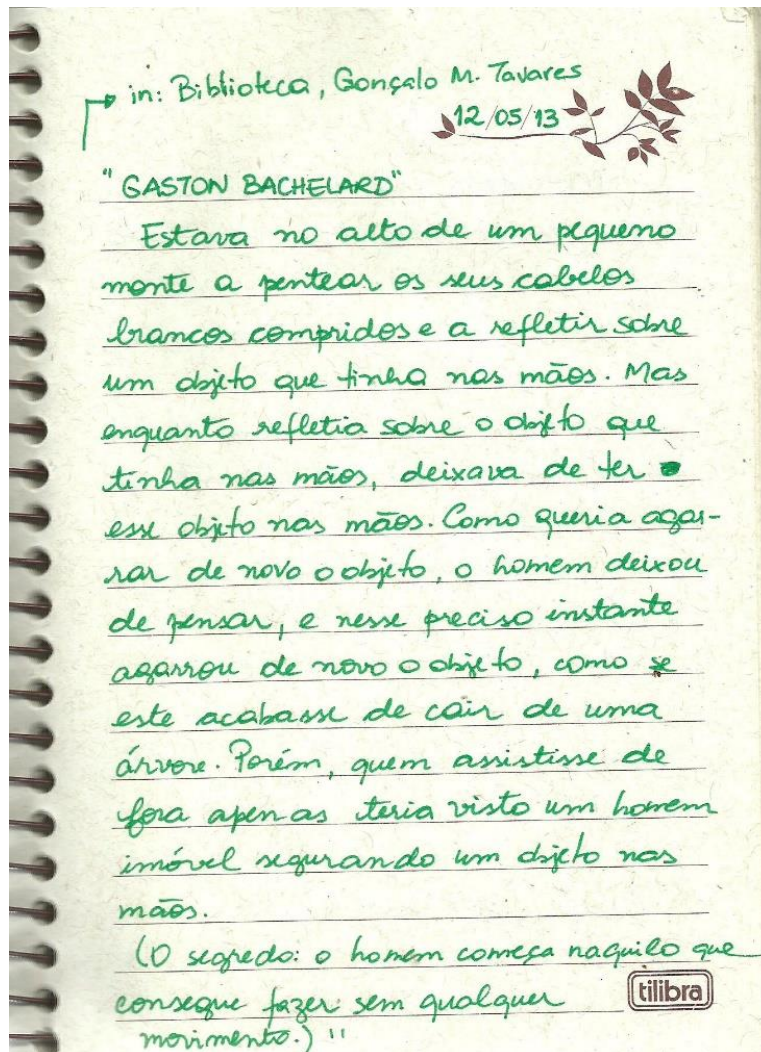 in: Biblioteca, Gonçalo M. Tavares
12/05/13
"GASTON BACHELARD"
Estava no alto de um pequeno
monte a pentear os seus cabelos
brancos compridos e a refletir sobre
um objeto que tinha nas mãos. Mas
enquanto refletia sobre o objeto que
tinha nas mãos, deixava de ter
esse objeto nas mãos. Como queria agar-
rar de novo o objeto, o homem deixou
de pensar, e nesse preciso instante
agarrou de novo o objeto, como se
este acabasse de cair de uma
árvore. Porém, quem assistisse de
fora apenas teria visto um homem
imóvel segurando um objeto nas
mãos.
(O segredo: o homem começa naquilo que
consegue fazer sem qualquer
tilibra
movimento.) "